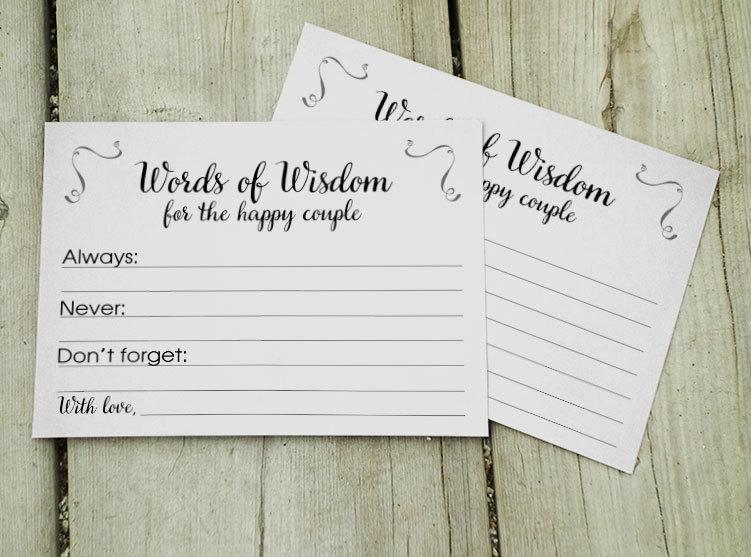 Words of Wisdom
for the happy couple
Always:
Never:
Don't forget:
With love,
of Wisdom
couple